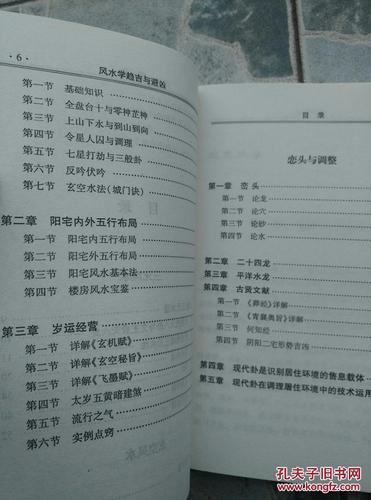 · 6 ·
风水学趋吉与避凶
第一节 基础知识
第二节 全盘台十与零神芷神
第三节 上山下水与到山到向
第四节 令星入囚与调理
第五节 七星打劫与三般卦
第六节 反吟伏吟
第七节 玄空水法(城门诀)
第二章 阳宅内外五行布局
第一节 阳宅内五行布局
第二节 阳宅外五行布局
第三节 阳宅风水基本法
第四节 楼房风水宝鉴
第三章 岁运经营
第一节 详解《玄机赋》
第二节 详解《玄空秘旨》
第三节 详解《飞墨赋》
第四节 太岁五黄暗建煞
第五节 流行之气
第六节 实例点窍
目 录
峦头与调整
第一章 峦头
第一节 论龙
第二节 论穴
第三节 论砂
第四节 论水
第二章 二十四龙
第三章 平洋水龙
第四章 古贤文献
第一节 《葬经》详解
第二节 《青囊奥旨》详解
第三节 何知经
第四节 阴阳二宅形势吉凶
第四章 现代卦是识别居住环境的售息载体
第五章 现代卦在调理居住环境中的技术运用
孔夫子旧书网